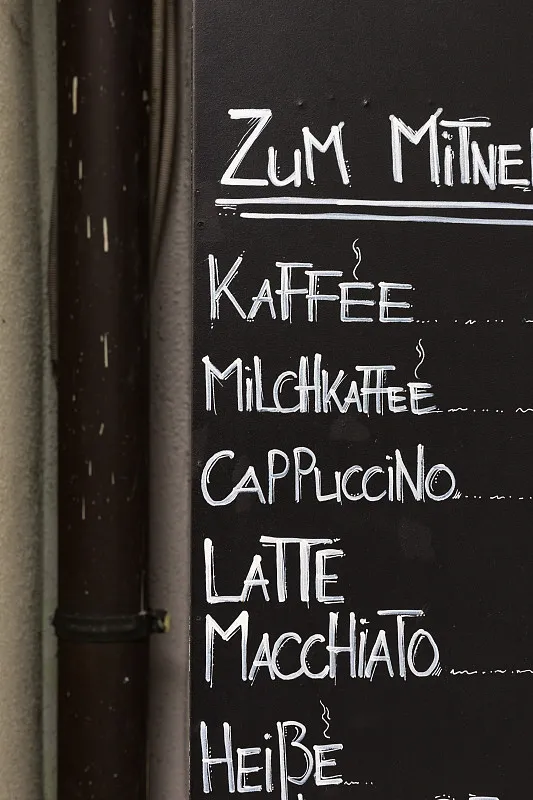 ZUM MITNE
KAFFEE
MILCHKAFFEE
CAPPUCCINO
LATTE
MACCHIATO
HEIßE